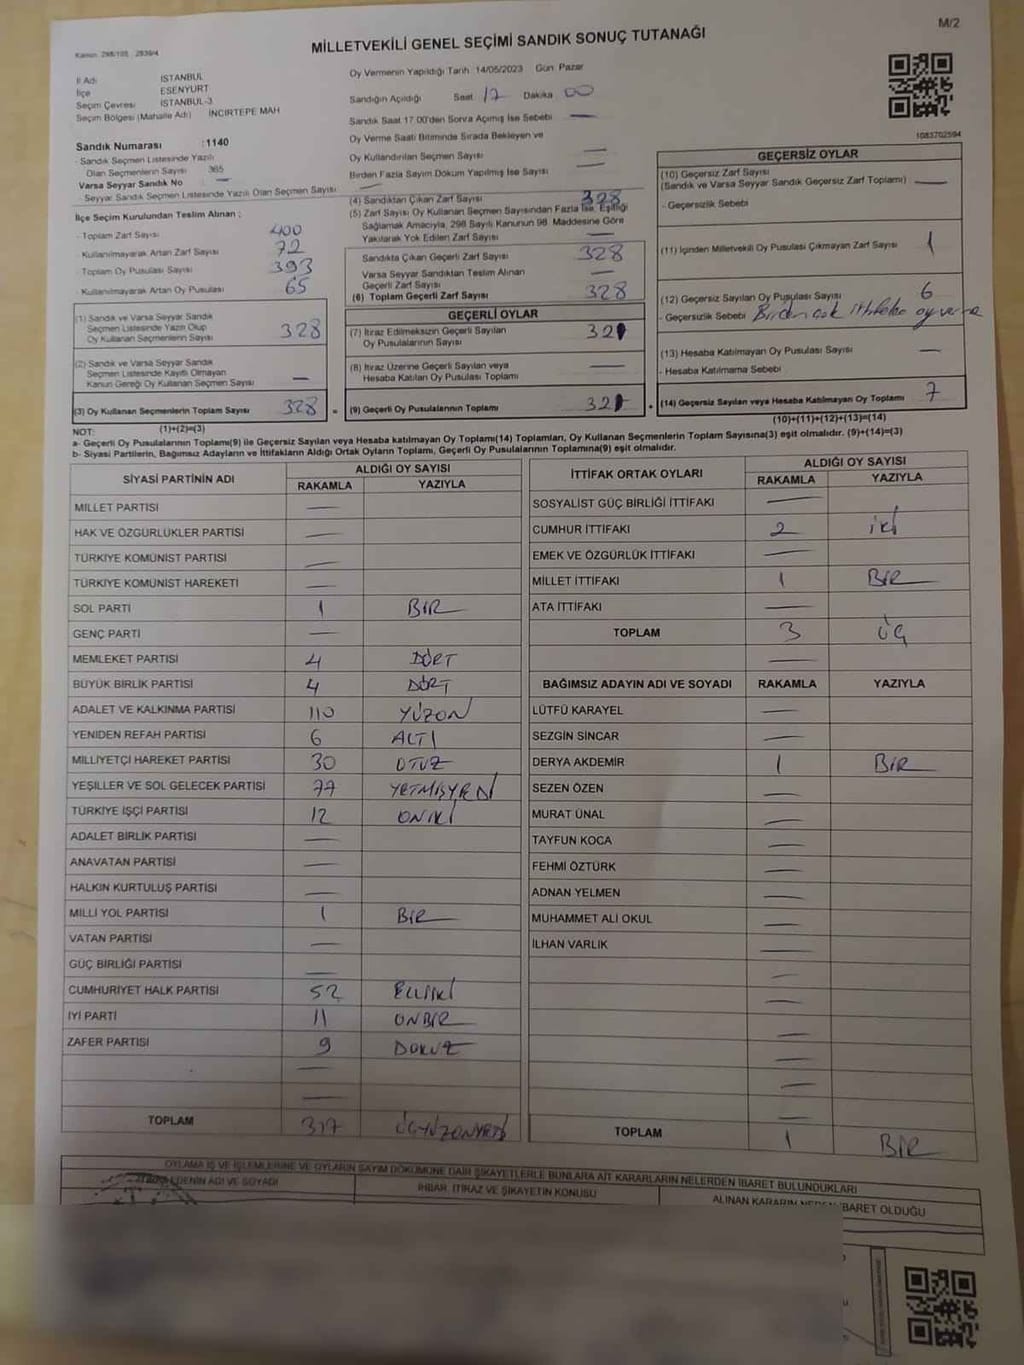 M/2
Kanun: 298/105, 2839/4
MİLLETVEKİLİ GENEL SEÇİMİ SANDIK SONUÇ TUTANAĞI
İl Adı İSTANBUL
İlçe ESENYURT
Seçim Çevresi İSTANBUL-3
Seçim Bölgesi (Mahalle Adı) İNCİRTEPE MAH
Sandık Numarası :1140
- Sandık Seçmen Listesinde Yazılı
Olan Seçmenlerin Sayısı 365
Varsa Seyyar Sandık No : —
- Seyyar Sandık Seçmen Listesinde Yazılı Olan Seçmen Sayısı —
İlçe Seçim Kurulundan Teslim Alınan ;
- Toplam Zarf Sayısı 400
- Kullanılmayarak Artan Zarf Sayısı 72
- Toplam Oy Pusulası Sayısı 393
- Kullanılmayarak Artan Oy Pusulası 65
(1) Sandık ve Varsa Seyyar Sandık
Seçmen Listesinde Yazılı Olup
Oy Kullanan Seçmenlerin Sayısı 328
(2) Sandık ve Varsa Seyyar Sandık
Seçmen Listesinde Kayıtlı Olmayan
Kanun Gereği Oy Kullanan Seçmen Sayısı —
(3) Oy Kullanan Seçmenlerin Toplam Sayısı 328
(1)+(2)=(3)
Oy Vermenin Yapıldığı Tarih :14/05/2023 Gün: Pazar
Sandığın Açıldığı Saat 17 Dakika 00
Sandık Saat 17:00'den Sonra Açımış İse Sebebi —
Oy Verme Saati Bitiminde Sırada Bekleyen ve
Oy Kullandırılan Seçmen Sayısı —
Birden Fazla Sayım Döküm Yapılmış İse Sayısı —
(4) Sandıktan Çıkan Zarf Sayısı 328
(5) Zarf Sayısı Oy Kullanan Seçmen Sayısından Fazla İse, Eşitliği
Sağlamak Amacıyla, 298 Sayılı Kanunun 98. Maddesine Göre
Yakılarak Yok Edilen Zarf Sayısı —
Sandıkta Çıkan Geçerli Zarf Sayısı 328
Varsa Seyyar Sandıktan Teslim Alınan
Geçerli Zarf Sayısı —
(6) Toplam Geçerli Zarf Sayısı 328
GEÇERLİ OYLAR
(7) İtiraz Edilmeksizin Geçerli Sayılan
Oy Pusulalarının Sayısı 321
(8) İtiraz Üzerine Geçerli Sayılan veya
Hesaba Katılan Oy Pusulası Toplamı —
(9) Geçerli Oy Pusulalarının Toplamı 321
1083702594
GEÇERSİZ OYLAR
(10) Geçersiz Zarf Sayısı
(Sandık ve Varsa Seyyar Sandık Geçersiz Zarf Toplamı) —
- Geçersizlik Sebebi
(11) İçinden Milletvekili Oy Pusulası Çıkmayan Zarf Sayısı 1
(12) Geçersiz Sayılan Oy Pusulası Sayısı 6
- Geçersizlik Sebebi Birden çok ittifaka oy verme
(13) Hesaba Katılmayan Oy Pusulası Sayısı —
- Hesaba Katılmama Sebebi
(14) Geçersiz Sayılan veya Hesaba Katılmayan Oy Toplamı 7
(10)+(11)+(12)+(13)=(14)
NOT:
a- Geçerli Oy Pusulalarının Toplamı(9) ile Geçersiz Sayılan veya Hesaba katılmayan Oy Toplamı(14) Toplamları, Oy Kullanan Seçmenlerin Toplam Sayısına(3) eşit olmalıdır. (9)+(14)=(3)
b- Siyasi Partilerin, Bağımsız Adayların ve İttifakların Aldığı Ortak Oyların Toplamı, Geçerli Oy Pusulalarının Toplamına(9) eşit olmalıdır.
SİYASİ PARTİNİN ADI ALDIĞI OY SAYISI
RAKAMLA YAZIYLA
MİLLET PARTİSİ —
HAK VE ÖZGÜRLÜKLER PARTİSİ —
TÜRKİYE KOMÜNİST PARTİSİ —
TÜRKİYE KOMÜNİST HAREKETİ —
SOL PARTİ 1 BİR
GENÇ PARTİ —
MEMLEKET PARTİSİ 4 DÖRT
BÜYÜK BİRLİK PARTİSİ 4 DÖRT
ADALET VE KALKINMA PARTİSİ 110 YÜZON
YENİDEN REFAH PARTİSİ 6 ALTI
MİLLİYETÇİ HAREKET PARTİSİ 30 OTUZ
YEŞİLLER VE SOL GELECEK PARTİSİ 77 YETMİŞYEDİ
TÜRKİYE İŞÇİ PARTİSİ 12 ONİKİ
ADALET BİRLİK PARTİSİ —
ANAVATAN PARTİSİ —
HALKIN KURTULUŞ PARTİSİ —
MİLLİ YOL PARTİSİ 1 BİR
VATAN PARTİSİ —
GÜÇ BİRLİĞİ PARTİSİ —
CUMHURİYET HALK PARTİSİ 52 ELLİİKİ
İYİ PARTİ 11 ONBİR
ZAFER PARTİSİ 9 DOKUZ
—
—
TOPLAM 317 ÜÇYÜZONYEDİ
İTTİFAK ORTAK OYLARI ALDIĞI OY SAYISI
RAKAMLA YAZIYLA
SOSYALİST GÜÇ BİRLİĞİ İTTİFAKI —
CUMHUR İTTİFAKI 2 iki
EMEK VE ÖZGÜRLÜK İTTİFAKI —
MİLLET İTTİFAKI 1 BİR
ATA İTTİFAKI —
TOPLAM 3 ÜÇ
—
BAĞIMSIZ ADAYIN ADI VE SOYADI RAKAMLA YAZIYLA
LÜTFÜ KARAYEL —
SEZGİN SİNCAR —
DERYA AKDEMİR 1 BİR
SEZEN ÖZEN —
MURAT ÜNAL —
TAYFUN KOCA —
FEHMİ ÖZTÜRK —
ADNAN YELMEN —
MUHAMMET ALİ OKUL —
İLHAN VARLIK —
—
—
—
—
—
—
TOPLAM 1 BİR
OYLAMA İŞ VE İŞLEMLERİNE VE OYLARIN SAYIM DÖKÜMÜNE DAİR ŞİKAYETLERLE BUNLARA AİT KARARLARIN NELERDEN İBARET BULUNDUKLARI
EDENİN ADI VE SOYADI
İHBAR, İTİRAZ VE ŞİKAYETİN KONUSU
ALINAN KARARIN NEDEN İBARET OLDUĞU